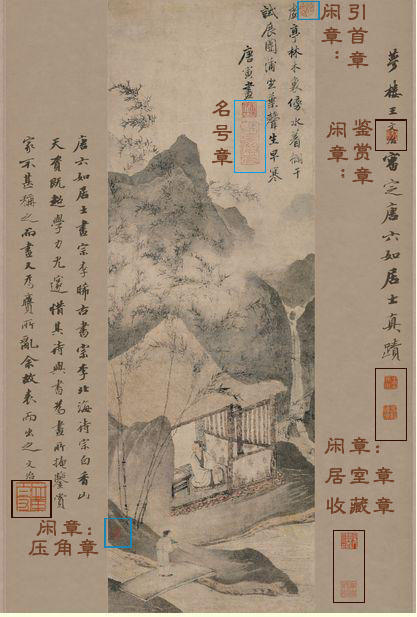 夢樓王文治審定唐六如居士真蹟
闲章：
引首章
虛亭林木裏傍水着欄干
試展團蒲坐葉聲生早寒
唐寅畫
名号章
闲章：
鉴赏章
唐六如居士畫宗李晞古書宗李北海詩宗白香山
天資既超學力尤邃惜其詩與書為畫所掩鑒賞
家不甚稱之而畫又為贗所亂余故表而出之文治
闲章：
居室章
收藏章
闲章：
压角章